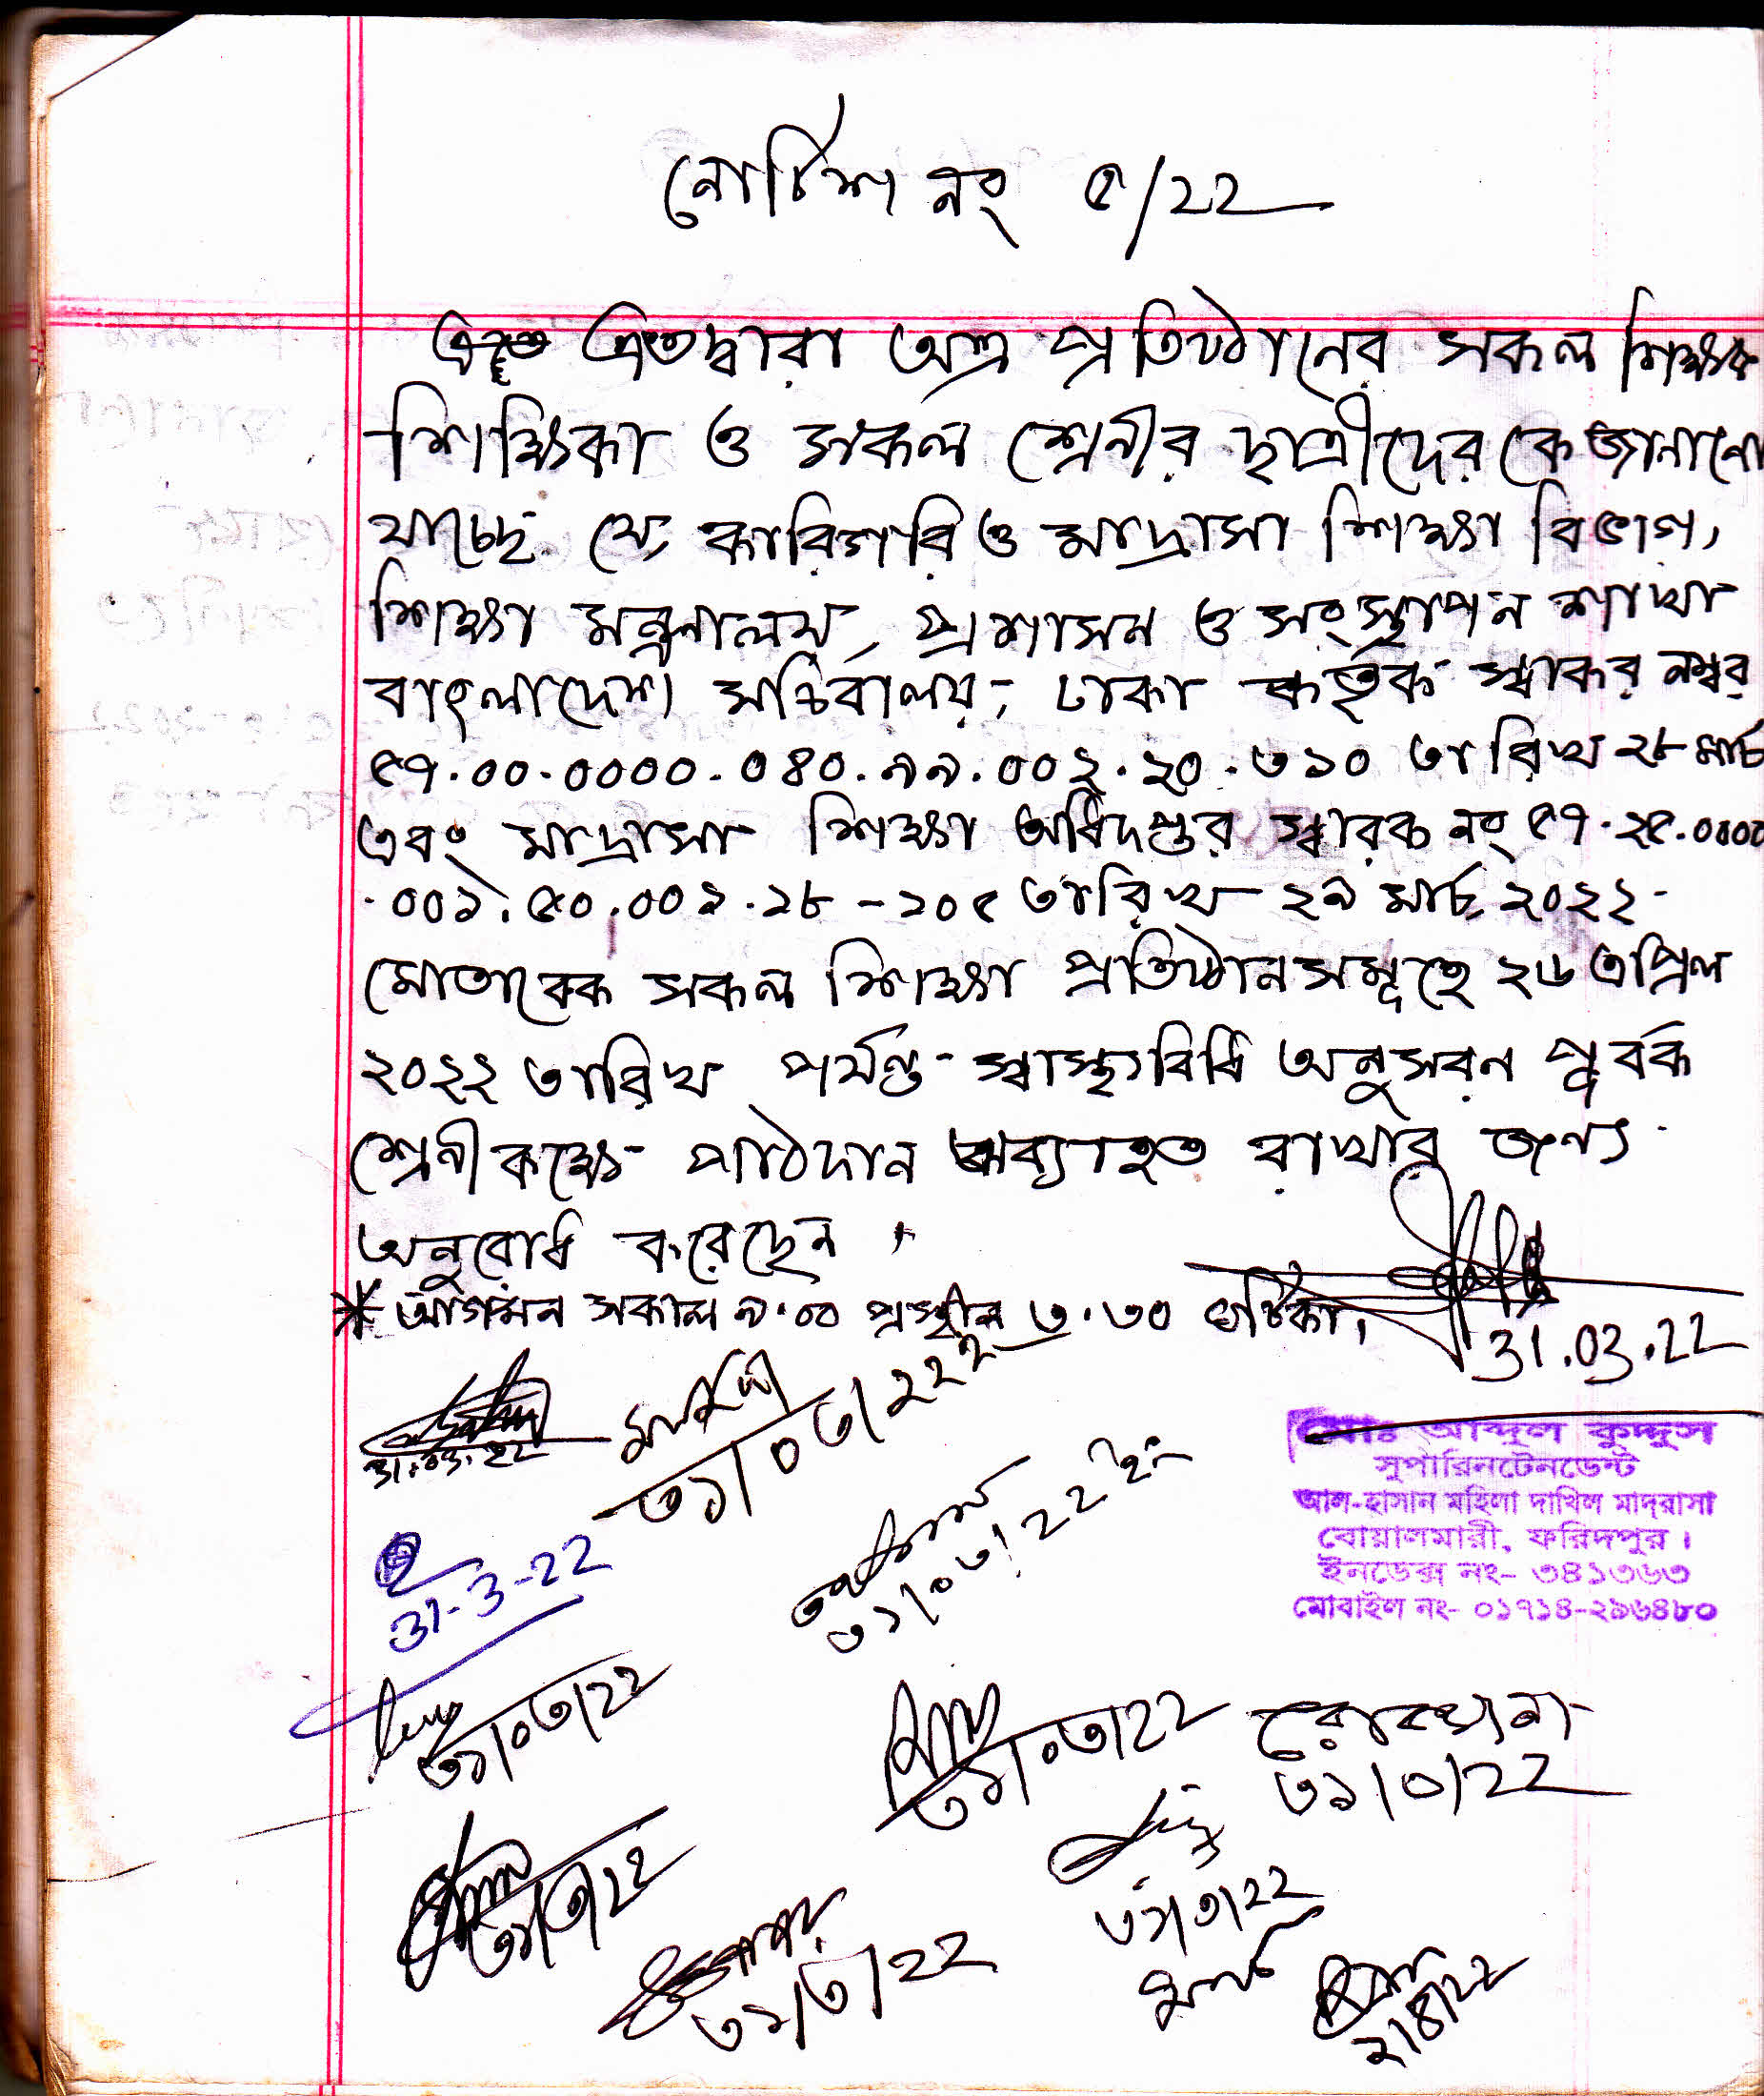 নোটিশ নং ৫/22
এতদ্বারা অত্র প্রতিষ্ঠানের সকল শিক্ষক
শিক্ষিকা ও সকল শ্রেনীর ছাত্রীদেরকে জানানো
যাচ্ছে যে, কারিগরি ও মাদ্রাসা শিক্ষা বিভাগ,
শিক্ষা মন্ত্রনালয়, প্রশাসন ও সংস্থাপন শাখা
বাংলাদেশ সচিবালয়, ঢাকা কর্তৃক স্বাকর নম্বর
৫৭.০০.০০০০.০৪০.৯৯.০০২.২০.৩১০ তারিখ ২৮ মার্চ
এবং মাদ্রাসা শিক্ষা অধিদপ্তর স্বারক নং ৫৭.২৫.০০০০
.০০১.৫০.০০১.১৮-২০৫ তারিখ ২৯ মার্চ ২০২২
মোতাবেক সকল শিক্ষা প্রতিষ্ঠানসমূহে ২৬ এপ্রিল
২০২২ তারিখ পর্যন্ত স্বাস্থ্যবিধি অনুসরন পূর্বক
শ্রেনীকক্ষে পাঠদান অব্যাহত রাখার জন্য
অনুরোধ করেছেন।
* আগমন সকাল ৯.০০ প্রস্থান ৩.৩০ ঘটিকা।
31.03.22
31.03.22
৩১/০৩/২২
মোঃ আব্দুল কুদ্দুস
সুপারিনটেনডেন্ট
আল-হাসান মহিলা দাখিল মাদ্‌রাসা
বোয়ালমারী, ফরিদপুর।
ইনডেক্স নং- ৩৪১৩৬৩
মোবাইল নং- ০১৭১৪-২৯৬৪৮০
31-3-22
৩১/০৩/22
৩১/০৩/22
৩১/০৩/22
রোকসানা
৩১/০/22
৩১/৩/22
৩১/৩/22
৩১/৩/22
২/৪/22